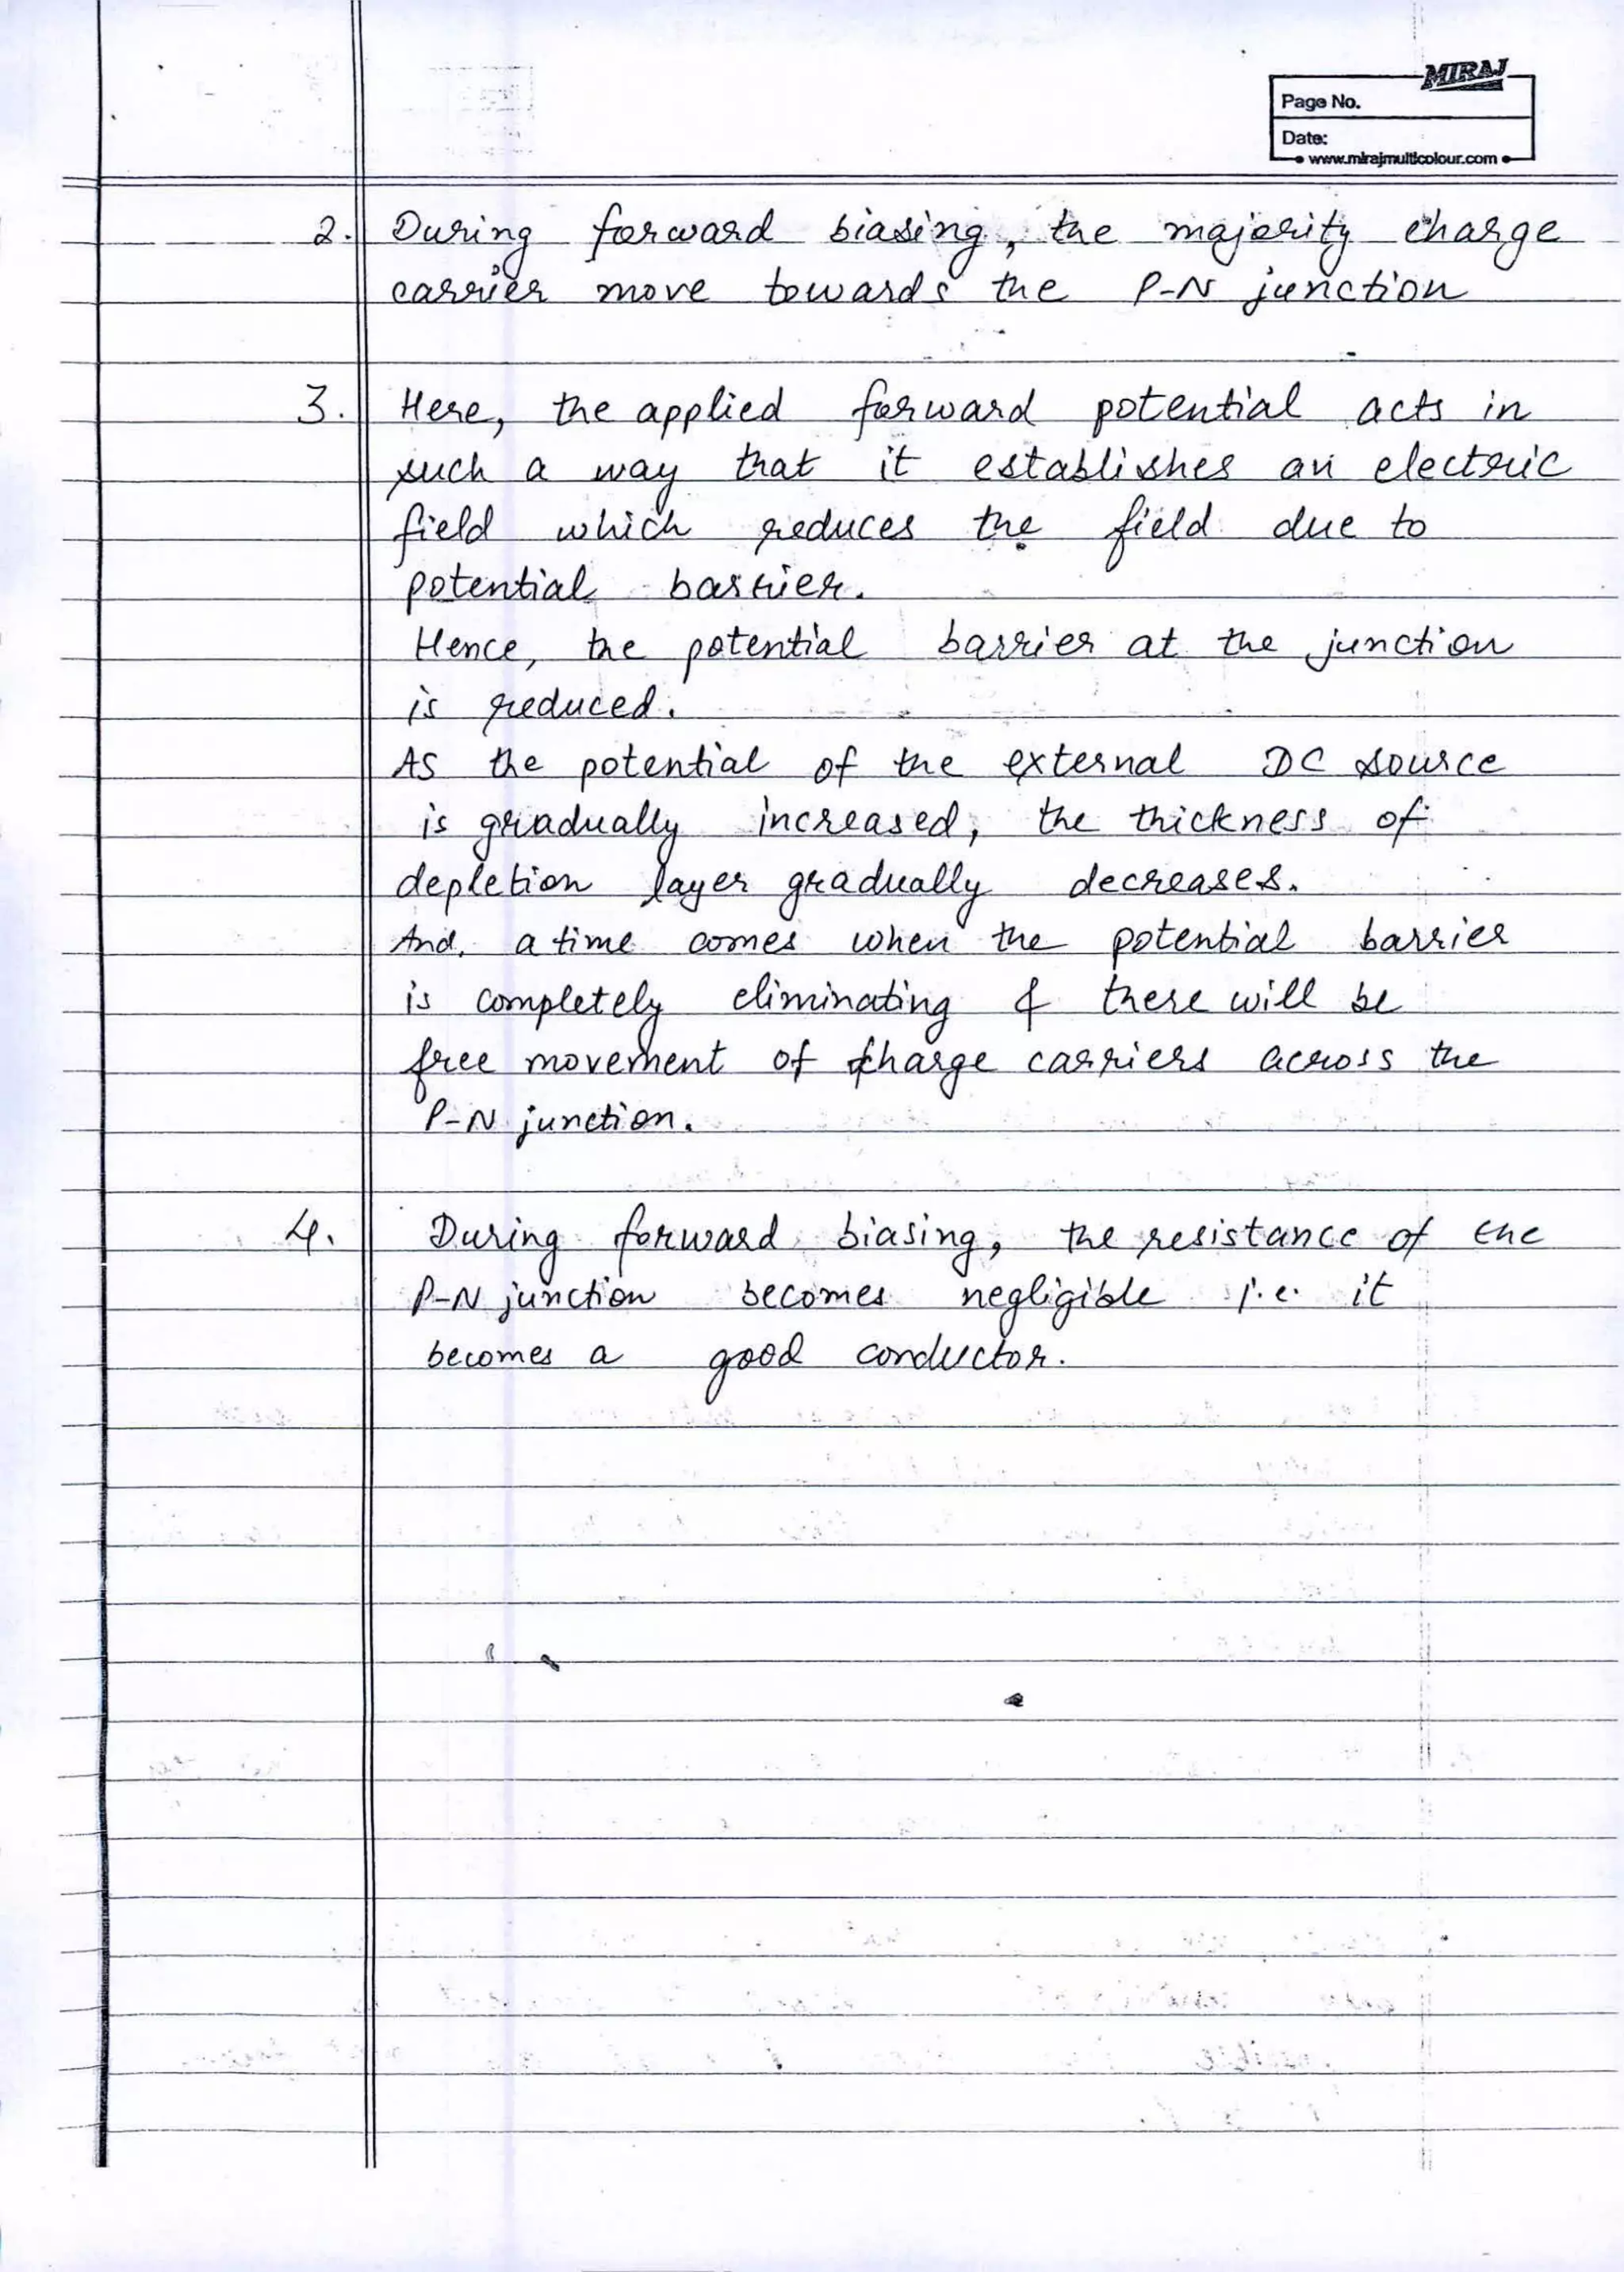 MIRAJ
Page No.
Date:
www.mirajmulticolour.com
2. During forward biasing, the majority charge
carrier move towards the P-N junction
3. Here, the applied forward potential acts in
such a way that it establishes an electric
field which reduces the field due to
potential barrier.
Hence, the potential barrier at the junction
is reduced.
As the potential of the external DC source
is gradually increased, the thickness of
depletion layer gradually decreases.
And, a time comes when the potential barrier
is completely eliminating & there will be
free movement of charge carriers across the
P-N junction.
4. During forward biasing, the resistance of the
P-N junction becomes negligible i.e. it
becomes a good conductor.